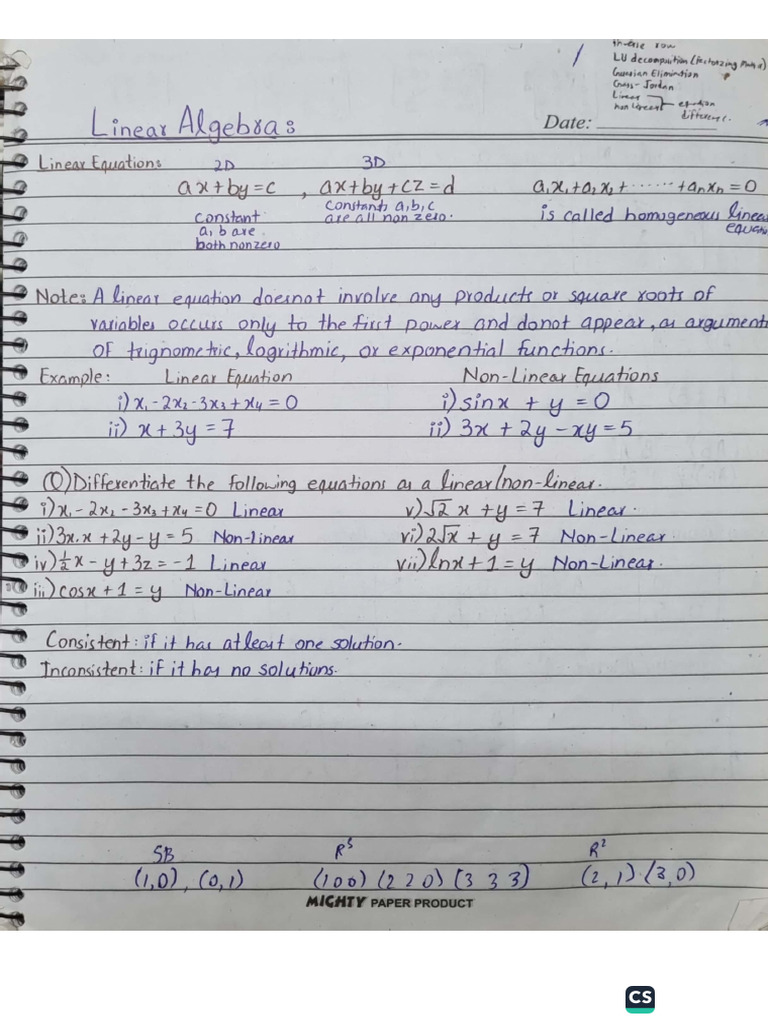 inverse row
LU decomposition (factorizing
Gaussian Elimination
Gauss-Jordan
Linear
non linear equation
different
Linear Algebra:
Date:
Linear Equation: 2D 3D
ax+by=c , ax+by+cz=d a₁x₁+a₂x₂+······+aₙxₙ=0
constant a, b are both nonzero
Constants a,b,c are all non zero.
is called homogeneous linear
Note: A linear equation doesnot involve any products or square roots of
variables occurs only to the first power and donot appear, as argument
of trignometric, logrithmic, or exponential functions.
Example: Linear Equation Non-Linear Equations
i) x₁-2x₂-3x₃+x₄=0 i) sinx + y = 0
ii) x+3y=7 ii) 3x+2y-xy=5
Q) Differentiate the following equations as a linear/non-linear.
i) x₁-2x₂-3x₃+x₄=0 Linear v) √2 x + y = 7 Linear.
ii) 3x.x+2y-y=5 Non-linear vi) 2√x + y = 7 Non-Linear.
iv) ½x-y+3z=-1 Linear vii) lnx+1=y Non-Linear.
iii) cosx+1=y Non-Linear
Consistent: if it has atleast one solution.
Inconsistent: if it has no solutions.
SB R³ R²
(1,0), (0,1) (1 0 0) (2 2 0) (3 3 3) (2,1).(3,0)
MIGHTY PAPER PRODUCT
CS